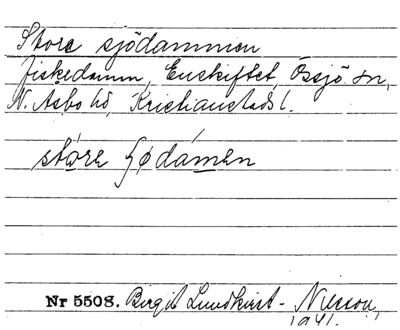 Store sjödammen
fiskedamm, Enskiftet, Össjö sn,
N. Åsbo hd, Kristianstads l.
stóre ʃødámen
Nr 5508. Birgit Lundkvist - Nilsson,
1941.